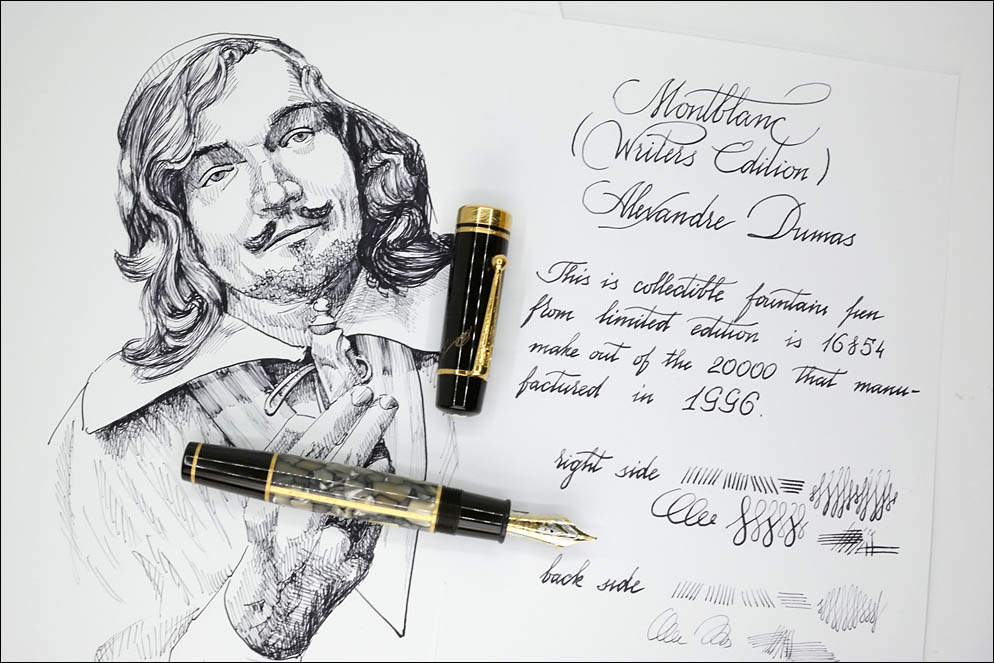 Montblanc
(Writers Edition)
Alexandre Dumas
This is collectible fountain pen
from limited edition is 16854
make out of the 20000 that manu-
factured in 1996.
right side
back side